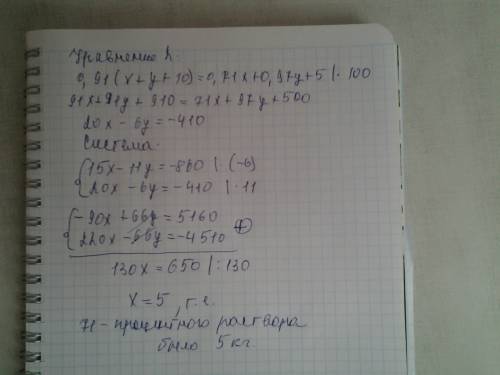 Уравнение 2.
0,91(x+y+10)=0,71x+0,97y+5 |·100
91x+91y+910=71x+97y+500
20x-6y=-410
Система.
{15x-11y=-860 |·(-6)
{20x-6y=-410 |·11
{-90x+66y=5160
{220x-66y=-4510 +
130x=650 |:130
x=5, т.е.
71-процентного раствора
было 5 кг.